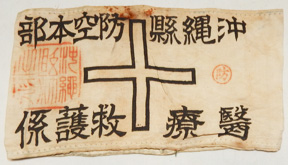 沖縄縣防空本部
醫療救護係
防